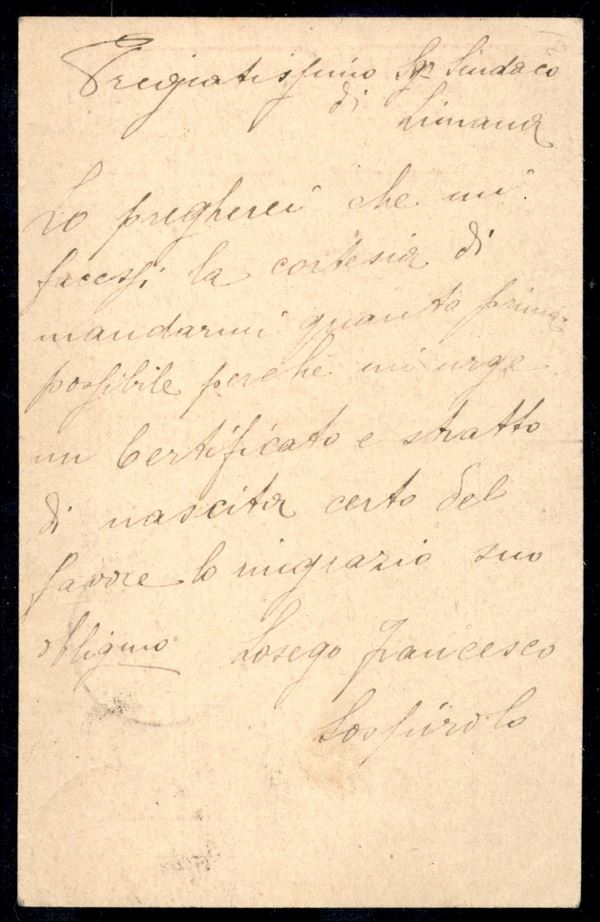 Pregiatissimo Sgr Sindaco
di Limana
Lo pregherei che mi
facessi la cortesia di
mandarmi quanto prima
possibile perché mi urge
un Certificato e stratto
di nascita certo del
favore lo ringrazio suo
obbligmo Losego Francesco
Sospirolo